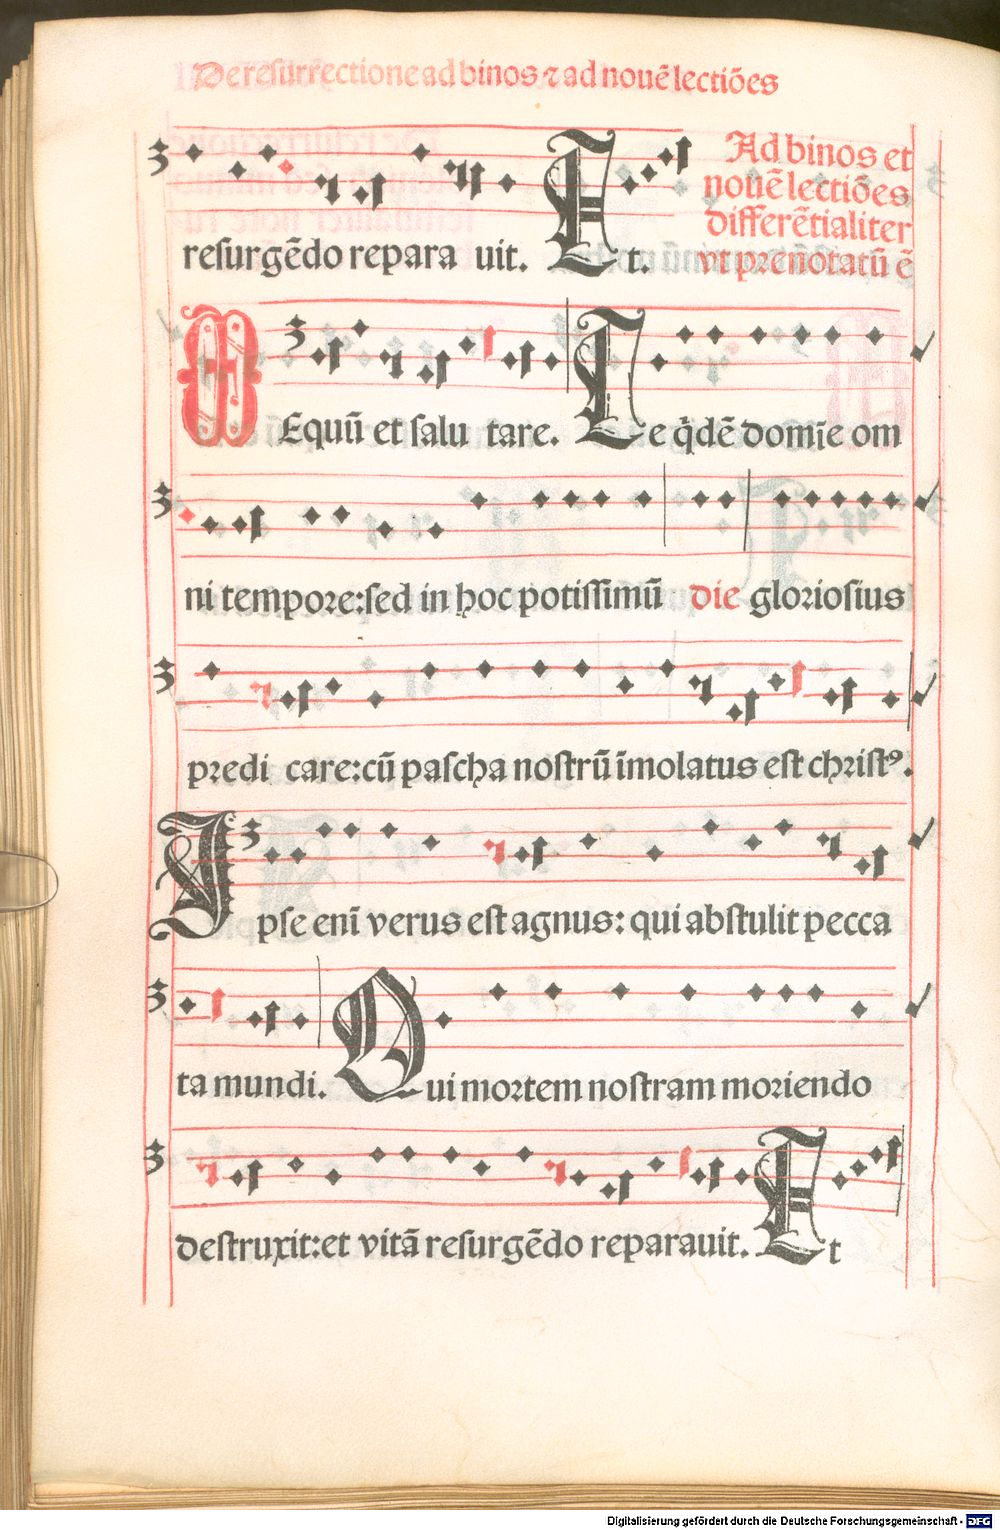 De resurrectione ad binos ⁊ ad nouē lectiōes
resurgēdo repara uit. Et.
Ad binos et
nouē lectiōes
differētialiter
vt prenotatū ē
Equū et salu tare. Te q̇dē domīe om
ni tempore: sed in hoc potissimū die gloriosius
predi care: cū pascha nostrū īmolatus est christꝰ.
Ipse enī verus est agnus: qui abstulit pecca
ta mundi. Qui mortem nostram moriendo
destruxit: et vitā resurgēdo reparauit. Et
Digitalisierung gefördert durch die Deutsche Forschungsgemeinschaft - DFG